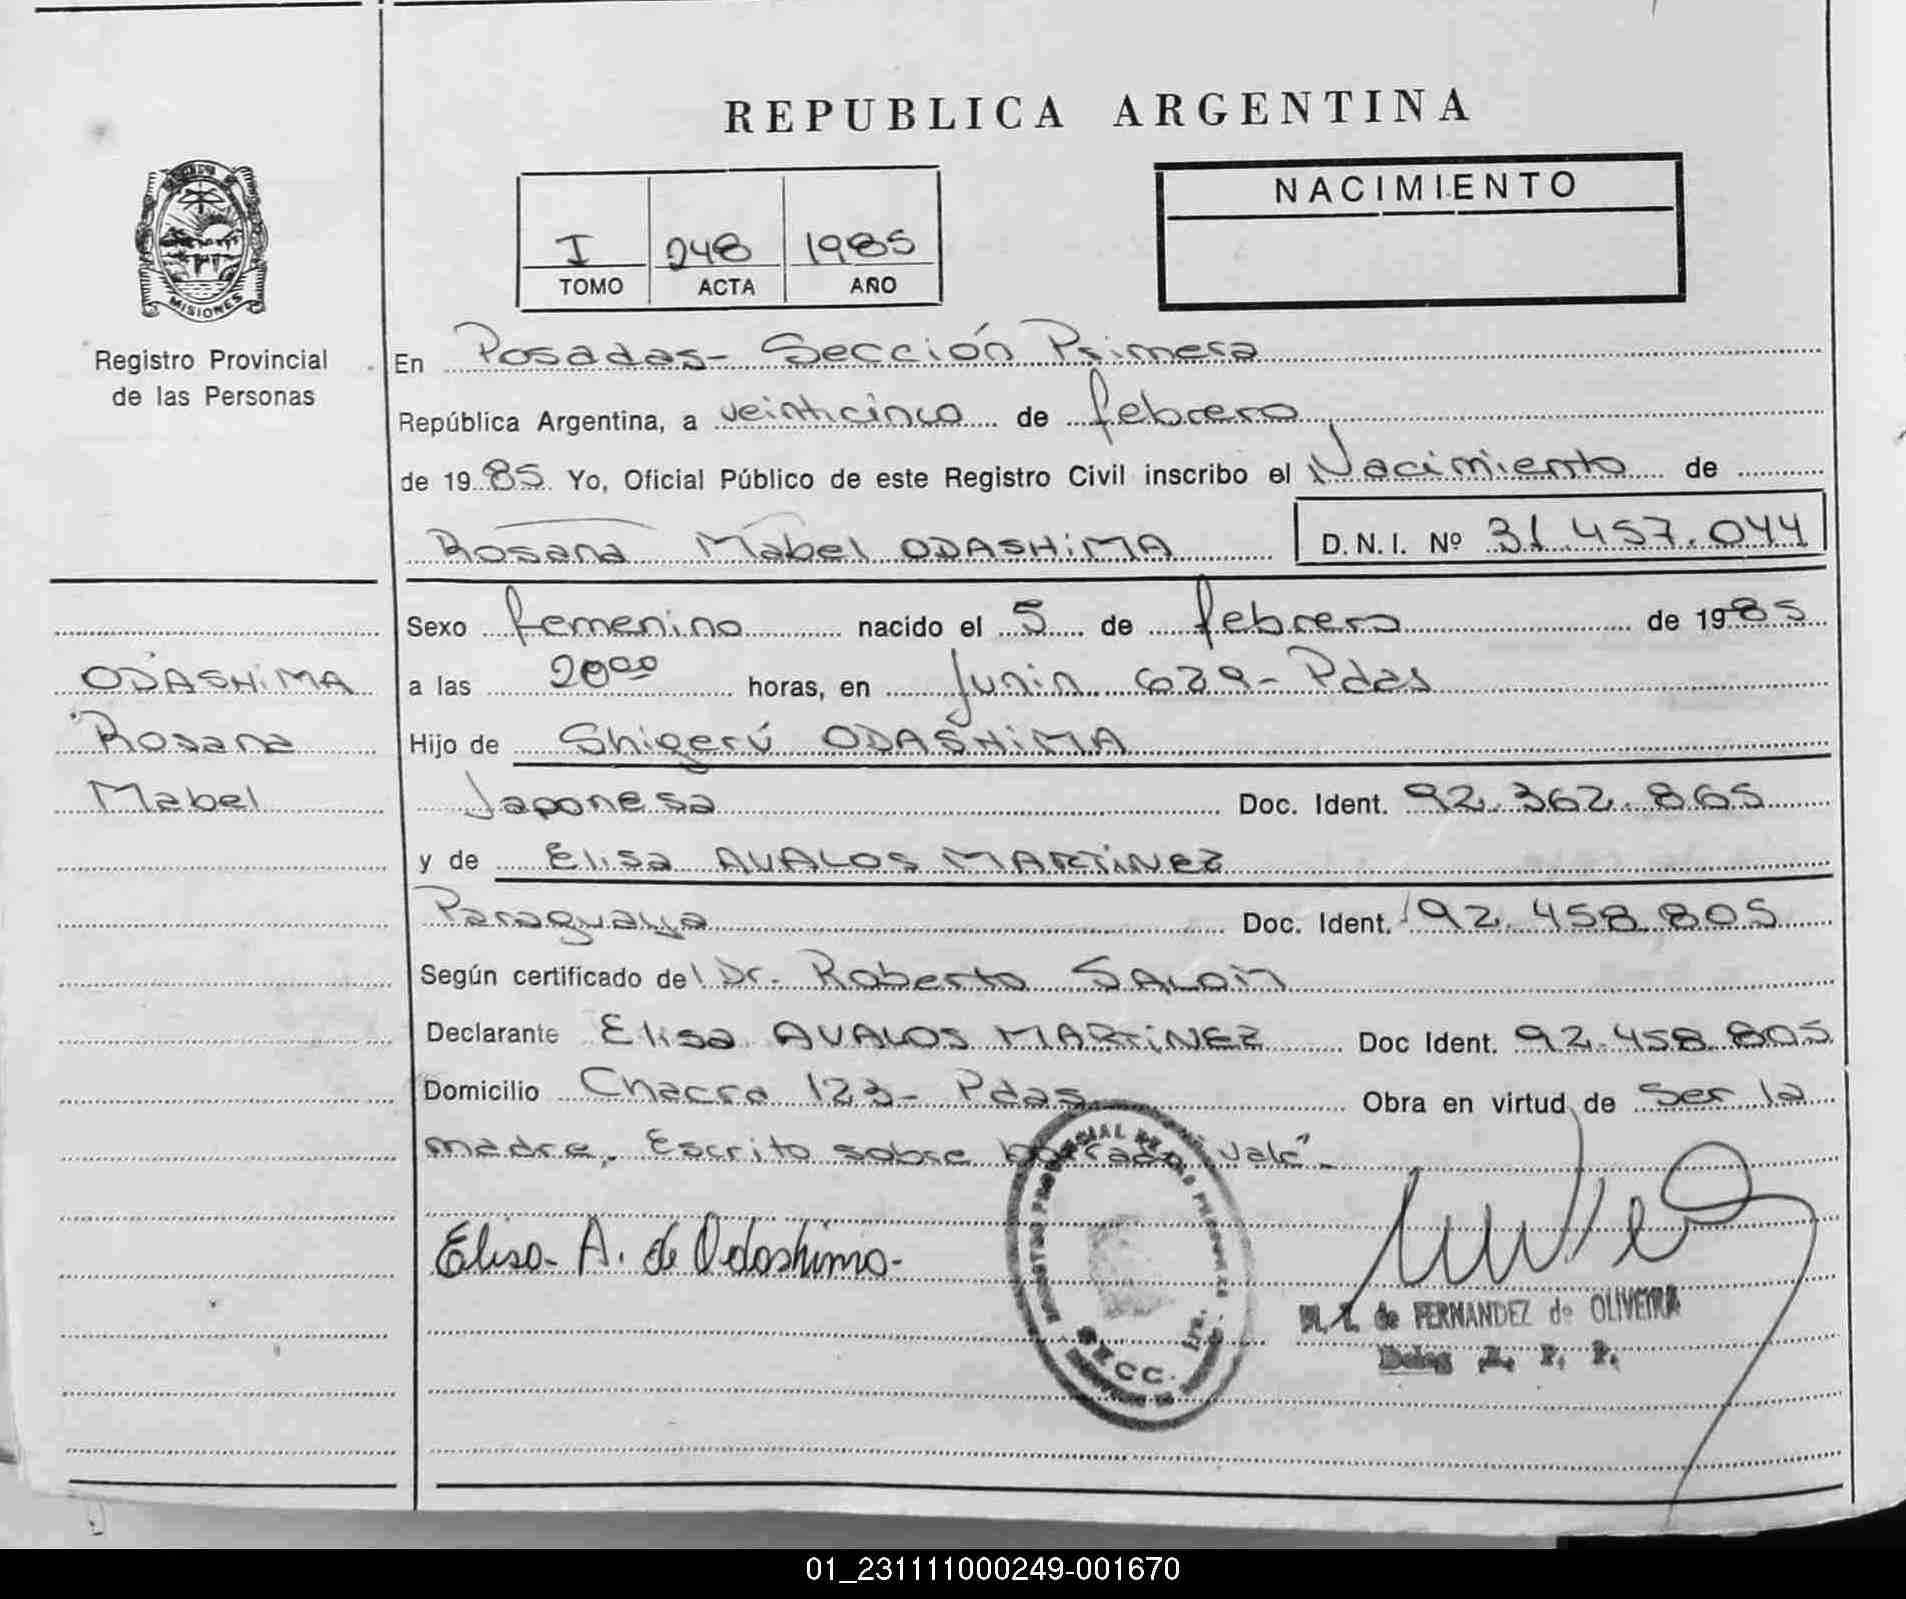 REPUBLICA ARGENTINA
MISIONES
Registro Provincial
de las Personas
I 248 1985
TOMO ACTA AÑO
NACIMIENTO
En Posadas- Sección Primera
República Argentina, a veinticinco de febrero
de 1985 Yo, Oficial Público de este Registro Civil inscribo el Nacimiento de
Rosana Mabel ODASHiMA D.N.I. Nº 31.457.044
Sexo femenino nacido el 5 de febrero de 1985
a las 20 00 horas, en Junin 629- Pdas
Hijo de Shigerú ODASHiMA
Japonesa Doc. Ident. 92.362.865
y de Elisa AVALOS MARTiNEZ
Paraguaya Doc. Ident. 92.458.805
Según certificado del Dr. Roberto
Declarante Elisa AVALOS MARTiNEZ Doc Ident. 92.458.805
Domicilio Chacra 123- Pdas Obra en virtud de Ser la
madre. Escrito sobre borrado "vale"-
ODASHiMA
Rosana
Mabel
Elisa A. de Odashima-
SECC. 1ra.
de FERNANDEZ de OLIVEIRA
Deleg. R. P. P.
01_231111000249-001670